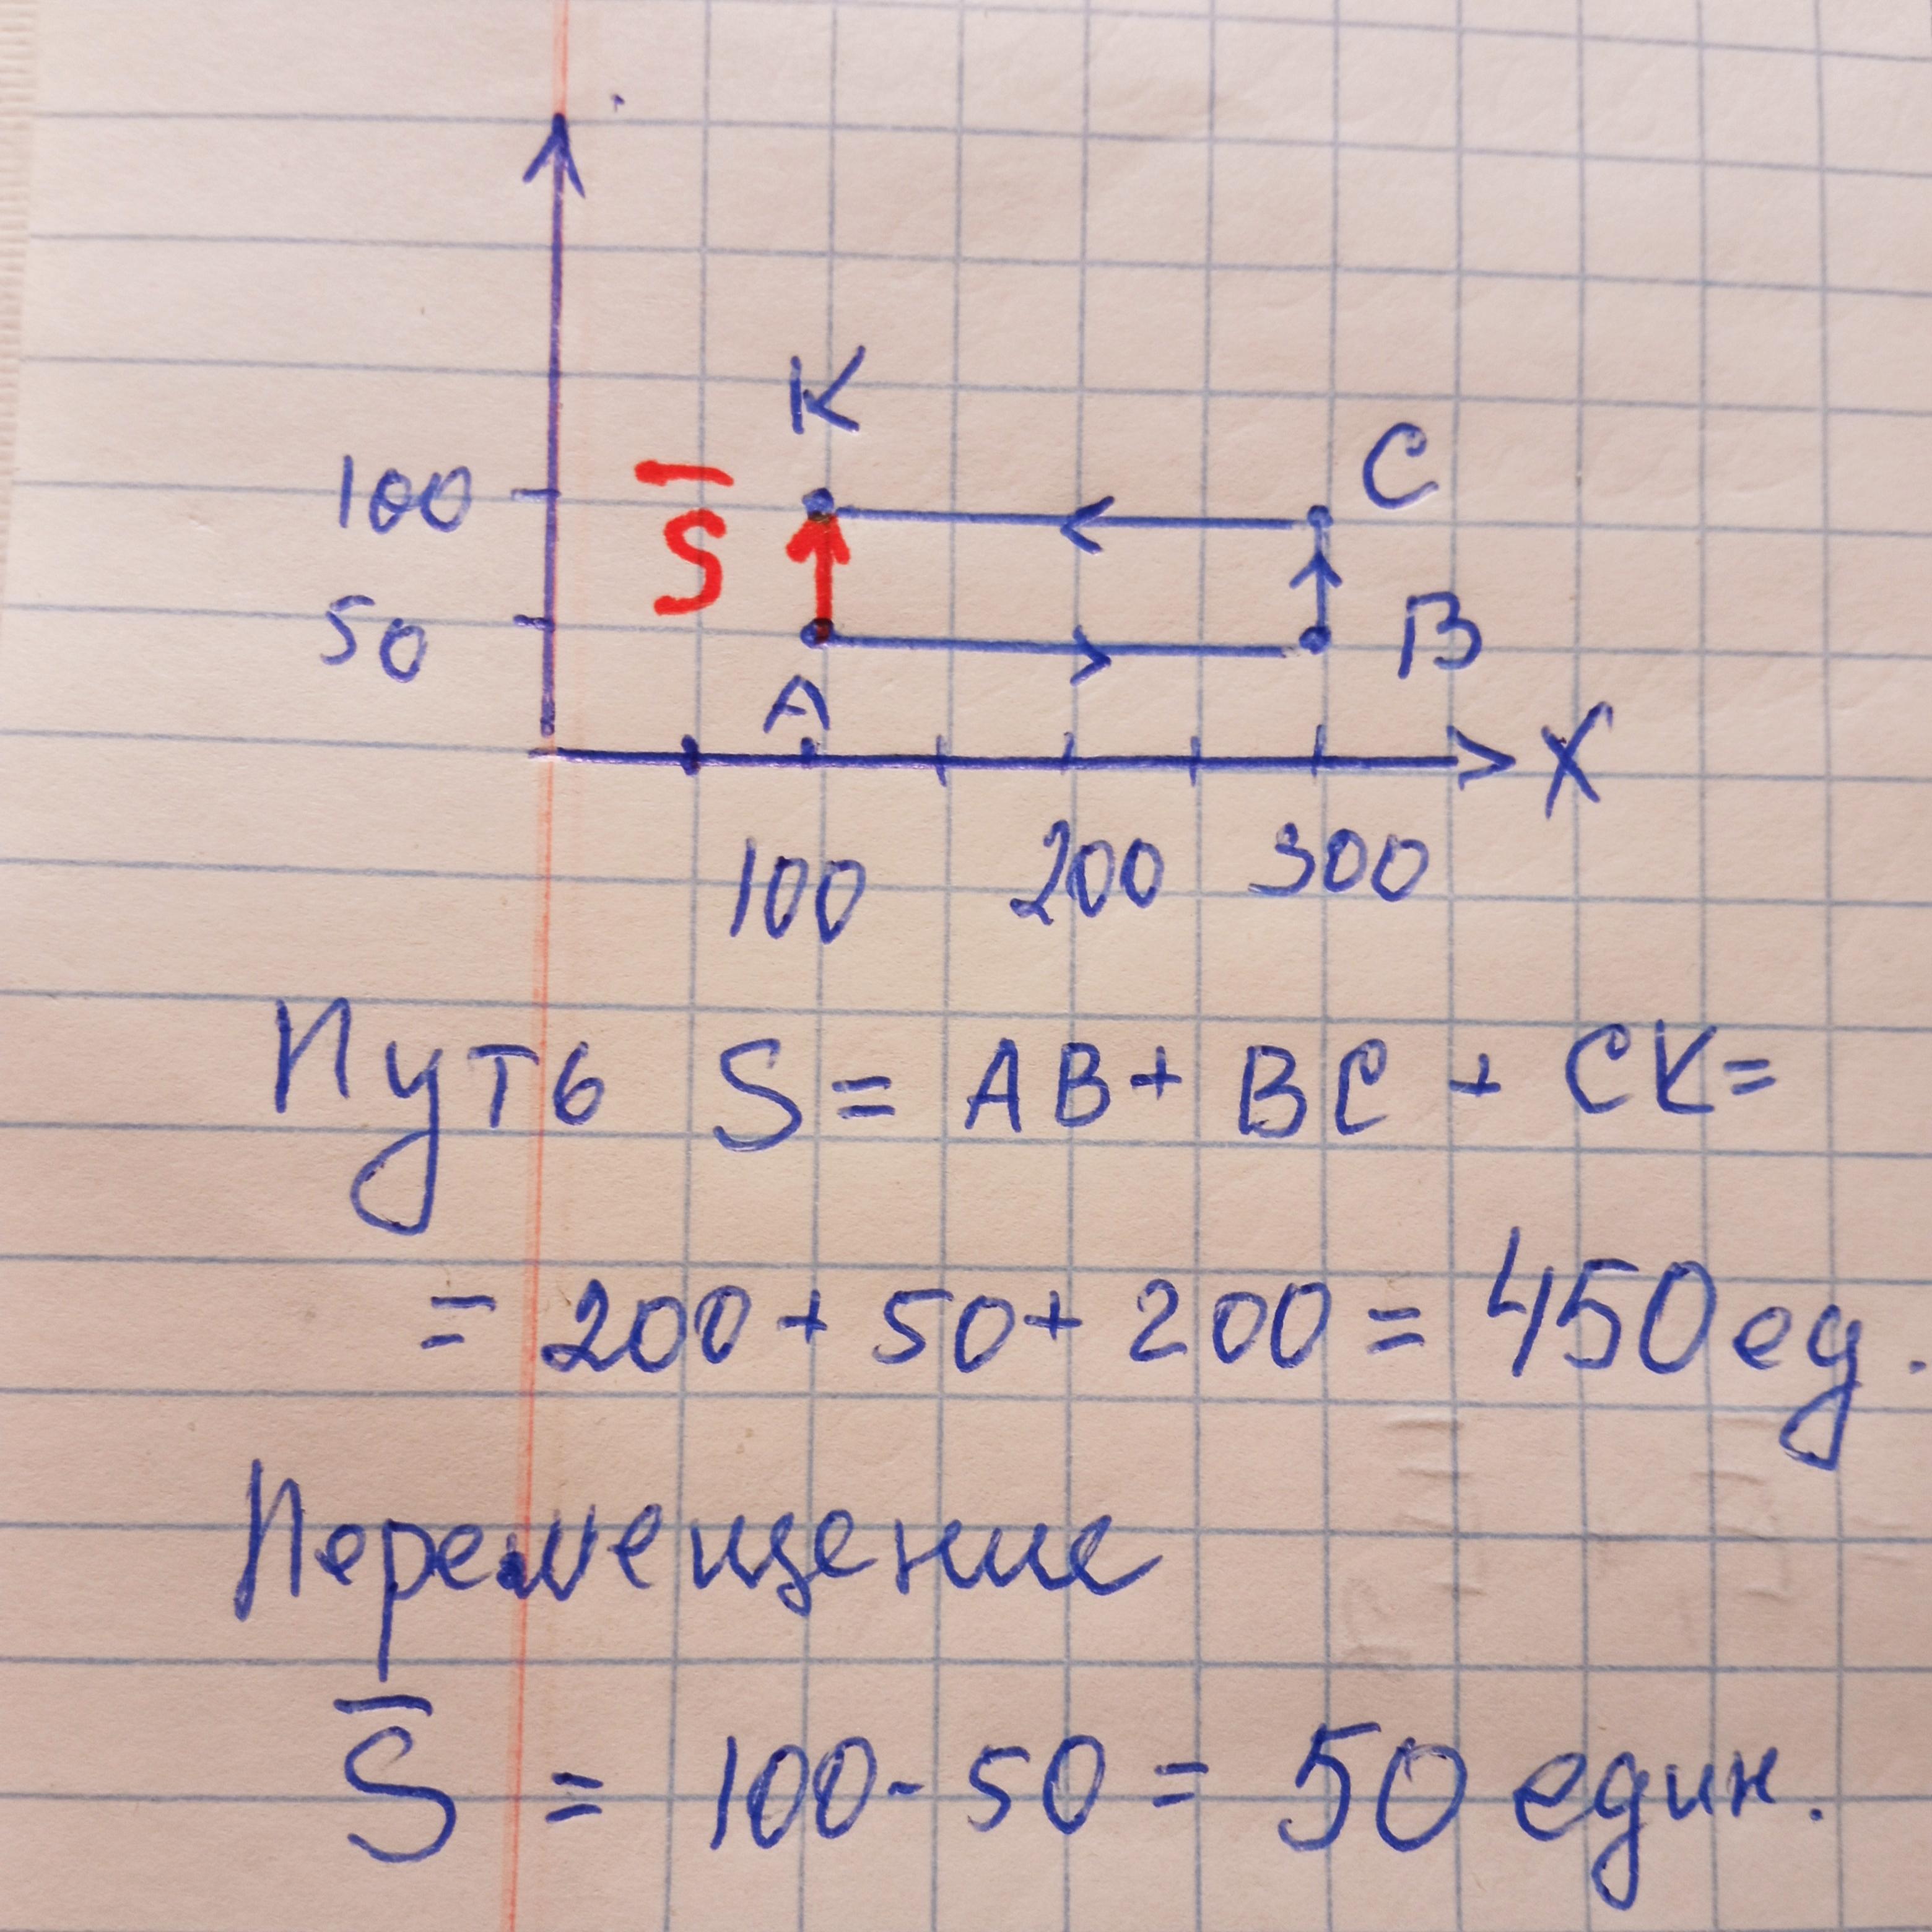 K
C
100
S̅
50
B
A
X
100 200 300
Путь S = AB + BC + CK =
= 200 + 50 + 200 = 450 ед.
Перемещение
S̅ = 100 - 50 = 50 един.